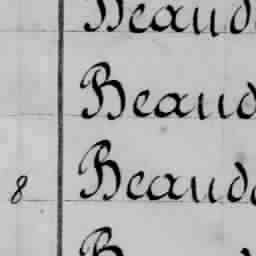 Beaud
Beaud
8 Beaud